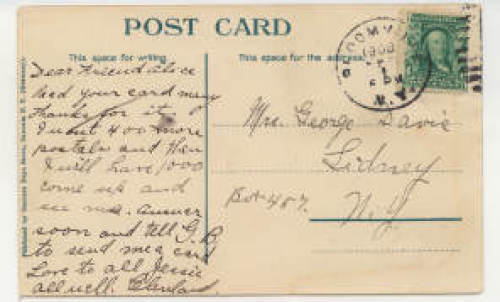 POST CARD
This space for writing.
This space for the address.
Dear Friend Alice
Rec'd your card many
thanks for it.
I want 400 more
postals and then
I will have 1000
come up and
see me. answer
soon and tell G.B.
to send me a card
Love to all Jessie
all well.
Mrs. George Davie
Sidney
Box 487.
N.Y.
1908
N.Y.